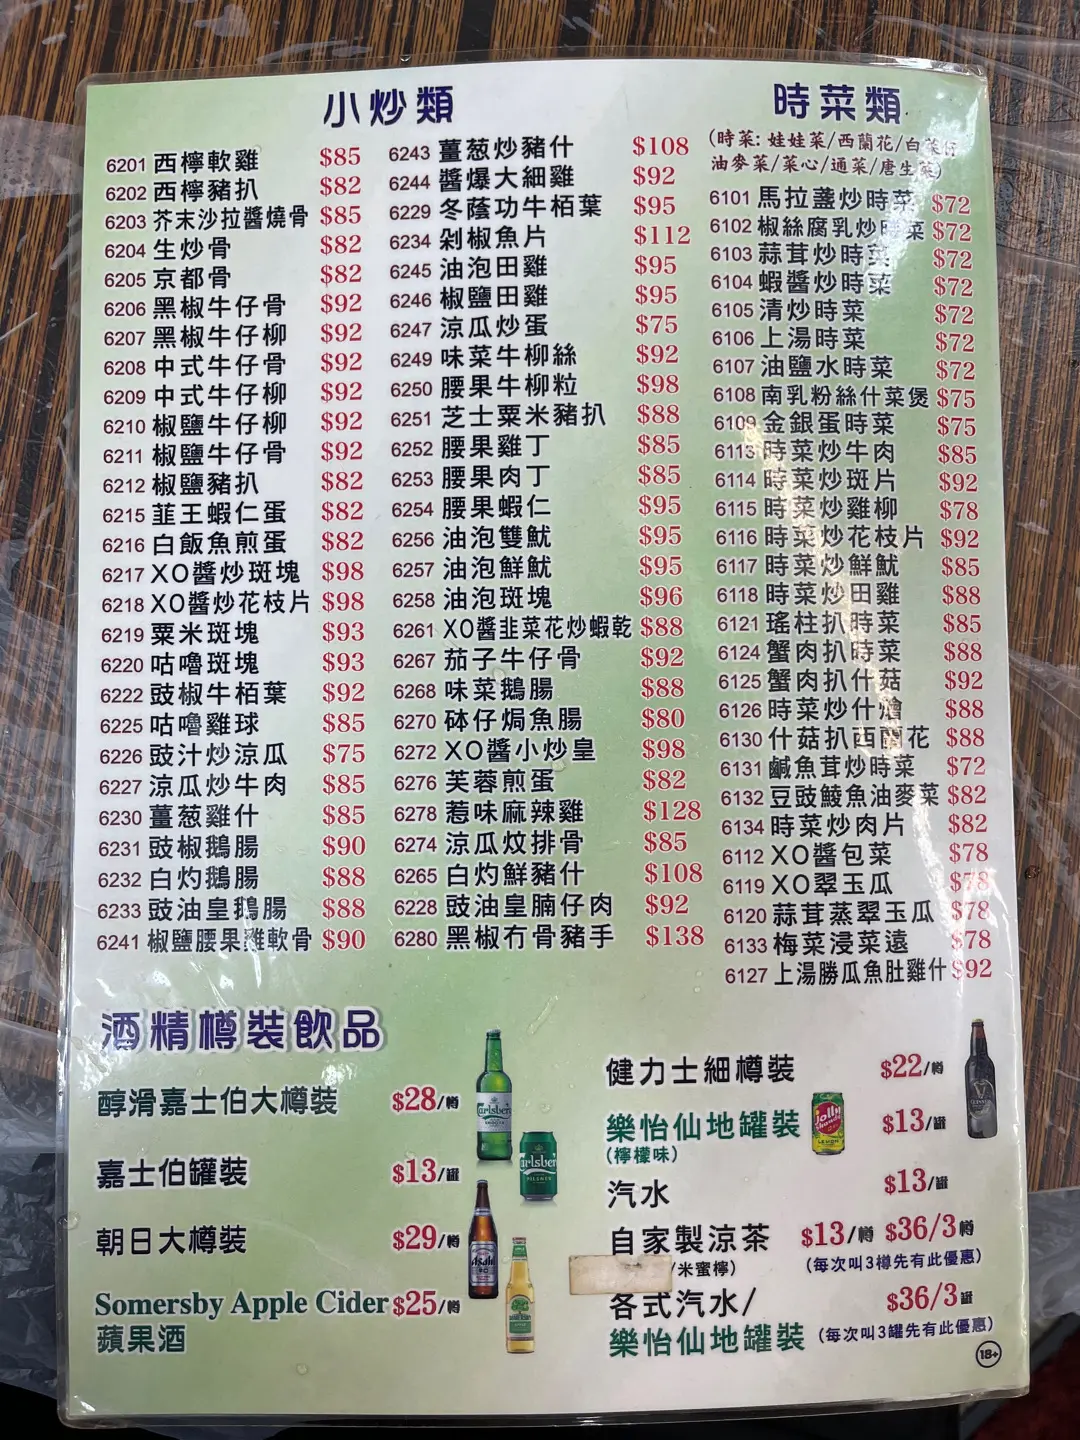 小炒類
6201 西檸軟雞 $85
6202 西檸豬扒 $82
6203 芥末沙拉醬燒骨 $85
6204 生炒骨 $82
6205 京都骨 $82
6206 黑椒牛仔骨 $92
6207 黑椒牛仔柳 $92
6208 中式牛仔骨 $92
6209 中式牛仔柳 $92
6210 椒鹽牛仔柳 $92
6211 椒鹽牛仔骨 $92
6212 椒鹽豬扒 $82
6215 韮王蝦仁蛋 $82
6216 白飯魚煎蛋 $82
6217 XO醬炒斑塊 $98
6218 XO醬炒花枝片 $98
6219 粟米斑塊 $93
6220 咕嚕斑塊 $93
6222 豉椒牛栢葉 $92
6225 咕嚕雞球 $85
6226 豉汁炒涼瓜 $75
6227 涼瓜炒牛肉 $85
6230 薑葱雞什 $85
6231 豉椒鵝腸 $90
6232 白灼鵝腸 $88
6233 豉油皇鵝腸 $88
6241 椒鹽腰果雞軟骨 $90
6243 薑葱炒豬什 $108
6244 醬爆大細雞 $92
6229 冬蔭功牛栢葉 $95
6234 剁椒魚片 $112
6245 油泡田雞 $95
6246 椒鹽田雞 $95
6247 涼瓜炒蛋 $75
6249 味菜牛柳絲 $92
6250 腰果牛柳粒 $98
6251 芝士粟米豬扒 $88
6252 腰果雞丁 $85
6253 腰果肉丁 $85
6254 腰果蝦仁 $95
6256 油泡雙魷 $95
6257 油泡鮮魷 $95
6258 油泡斑塊 $96
6261 XO醬韭菜花炒蝦乾 $88
6267 茄子牛仔骨 $92
6268 味菜鵝腸 $88
6270 砵仔焗魚腸 $80
6272 XO醬小炒皇 $98
6276 芙蓉煎蛋 $82
6278 惹味麻辣雞 $128
6274 涼瓜炆排骨 $85
6265 白灼鮮豬什 $108
6228 豉油皇腩仔肉 $92
6280 黑椒冇骨豬手 $138
時菜類
(時菜: 娃娃菜/西蘭花/白菜仔
油麥菜/菜心/通菜/唐生菜)
6101 馬拉盞炒時菜 $72
6102 椒絲腐乳炒時菜 $72
6103 蒜茸炒時菜 $72
6104 蝦醬炒時菜 $72
6105 清炒時菜 $72
6106 上湯時菜 $72
6107 油鹽水時菜 $72
6108 南乳粉絲什菜煲 $75
6109 金銀蛋時菜 $75
6113 時菜炒牛肉 $85
6114 時菜炒斑片 $92
6115 時菜炒雞柳 $78
6116 時菜炒花枝片 $92
6117 時菜炒鮮魷 $85
6118 時菜炒田雞 $88
6121 瑤柱扒時菜 $85
6124 蟹肉扒時菜 $88
6125 蟹肉扒什菇 $92
6126 時菜炒什燴 $88
6130 什菇扒西蘭花 $88
6131 鹹魚茸炒時菜 $72
6132 豆豉鯪魚油麥菜 $82
6134 時菜炒肉片 $82
6112 XO醬包菜 $78
6119 XO翠玉瓜 $78
6120 蒜茸蒸翠玉瓜 $78
6133 梅菜浸菜遠 $78
6127 上湯勝瓜魚肚雞什 $92
酒精樽裝飲品
醇滑嘉士伯大樽裝 $28/樽
嘉士伯罐裝 $13/罐
朝日大樽裝 $29/樽
Somersby Apple Cider $25/樽
蘋果酒
健力士細樽裝 $22/樽
樂怡仙地罐裝 $13/罐
(檸檬味)
汽水 $13/罐
自家製涼茶 $13/樽 $36/3樽
/米蜜檸) (每次叫3樽先有此優惠)
各式汽水/ $36/3罐
樂怡仙地罐裝 (每次叫3罐先有此優惠)
18+
Carlsberg
Carlsberg
PILSNER
Asahi
jolly
shandy
LEMON